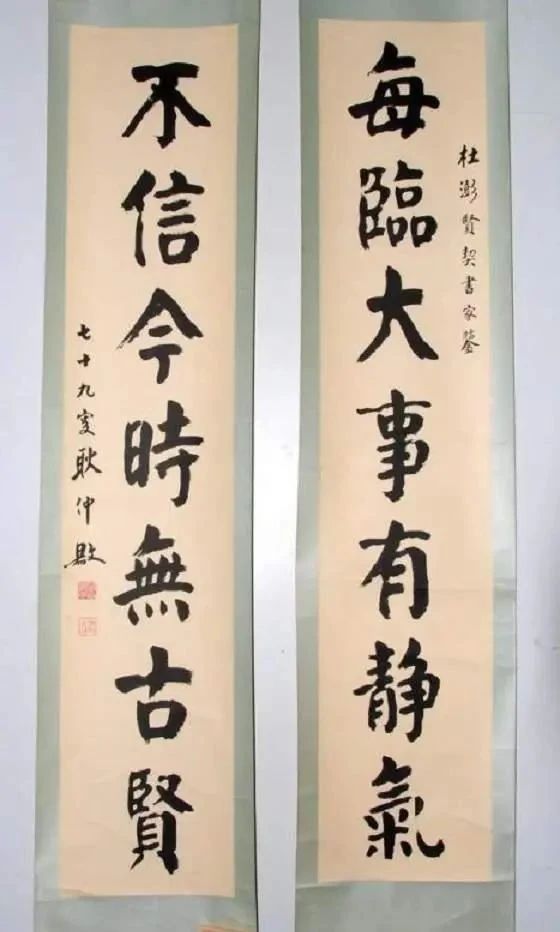 每臨大事有静氣
杜澎賢契書家鑒
不信今時無古賢
七十九叟耿仲敭